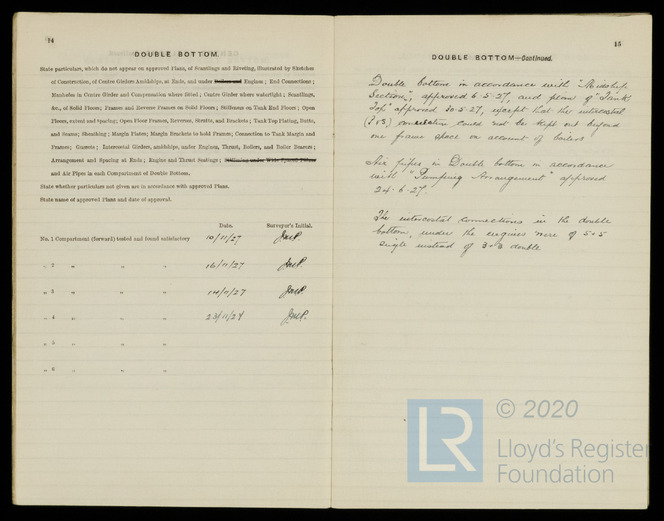 14
DOUBLE BOTTOM.
State particulars, which do not appear on approved Plans, of Scantlings and Riveting, illustrated by Sketches
of Construction, of Centre Girders Amidships, at Ends, and under Engines; End Connections;
Manholes in Centre Girder and Compensation where fitted; Centre Girder where watertight; Scantlings,
&c., of Solid Floors; Frames and Reverse Frames on Solid Floors; Stiffeners on Tank End Floors; Open
Floors, extent and spacing; Open Floor Frames, Reverses, Struts, and Brackets; Tank Top Plating, Butts,
and Seams; Sheathing; Margin Plates; Margin Brackets to hold Frames; Connection to Tank Margin and
Frames; Gussets; Intercostal Girders, amidships, under Engines, Thrust, Boilers, and Boiler Bearers;
Arrangement and Spacing at Ends; Engine and Thrust Seatings; Stiffening under Wide Spaced Pillars
and Air Pipes in each Compartment of Double Bottom.
State whether particulars not given are in accordance with approved Plans.
State name of approved Plans and date of approval.
Date. Surveyor's Initial.
No. 1 Compartment (forward) tested and found satisfactory 10/11/27
„ 2 „ „ „ 16/11/27
„ 3 „ „ „ 14/11/27
„ 4 „ „ „ 23/11/27
„ 5 „ „ „
„ 6 „ „ „
15
DOUBLE BOTTOM—Continued.
Double bottom in accordance with "Midship
Section", approved 6-5-27, and plan of "Tank
Top" approved 30-5-27, except that the intercostal
(P.&S) could not be kept out beyond
one frame space on account of boilers
Air pipes in Double bottom in accordance
with "Pumping Arrangement" approved
24-6-27.
The intercostal connections in the double
bottom, under the engines were of 5×5
single instead of 3×3 double
LR
© 2020
Lloyd's Register
Foundation